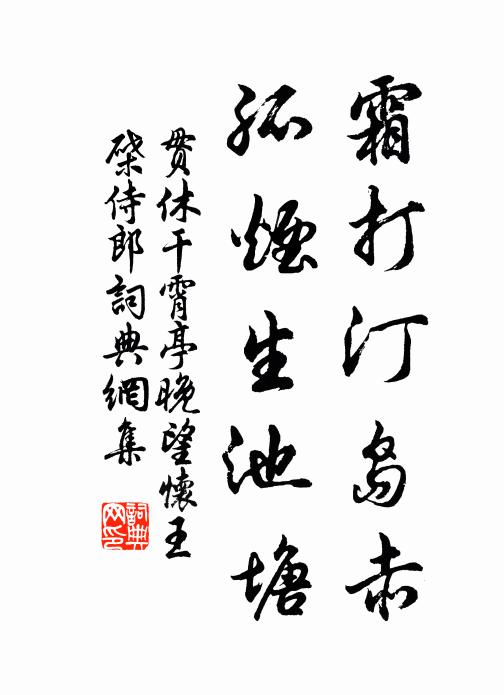 霜打汀岛赤
孤煙生池塘
贯休干霄亭晚望懷王
棨侍郎詞典網集
詞典网印